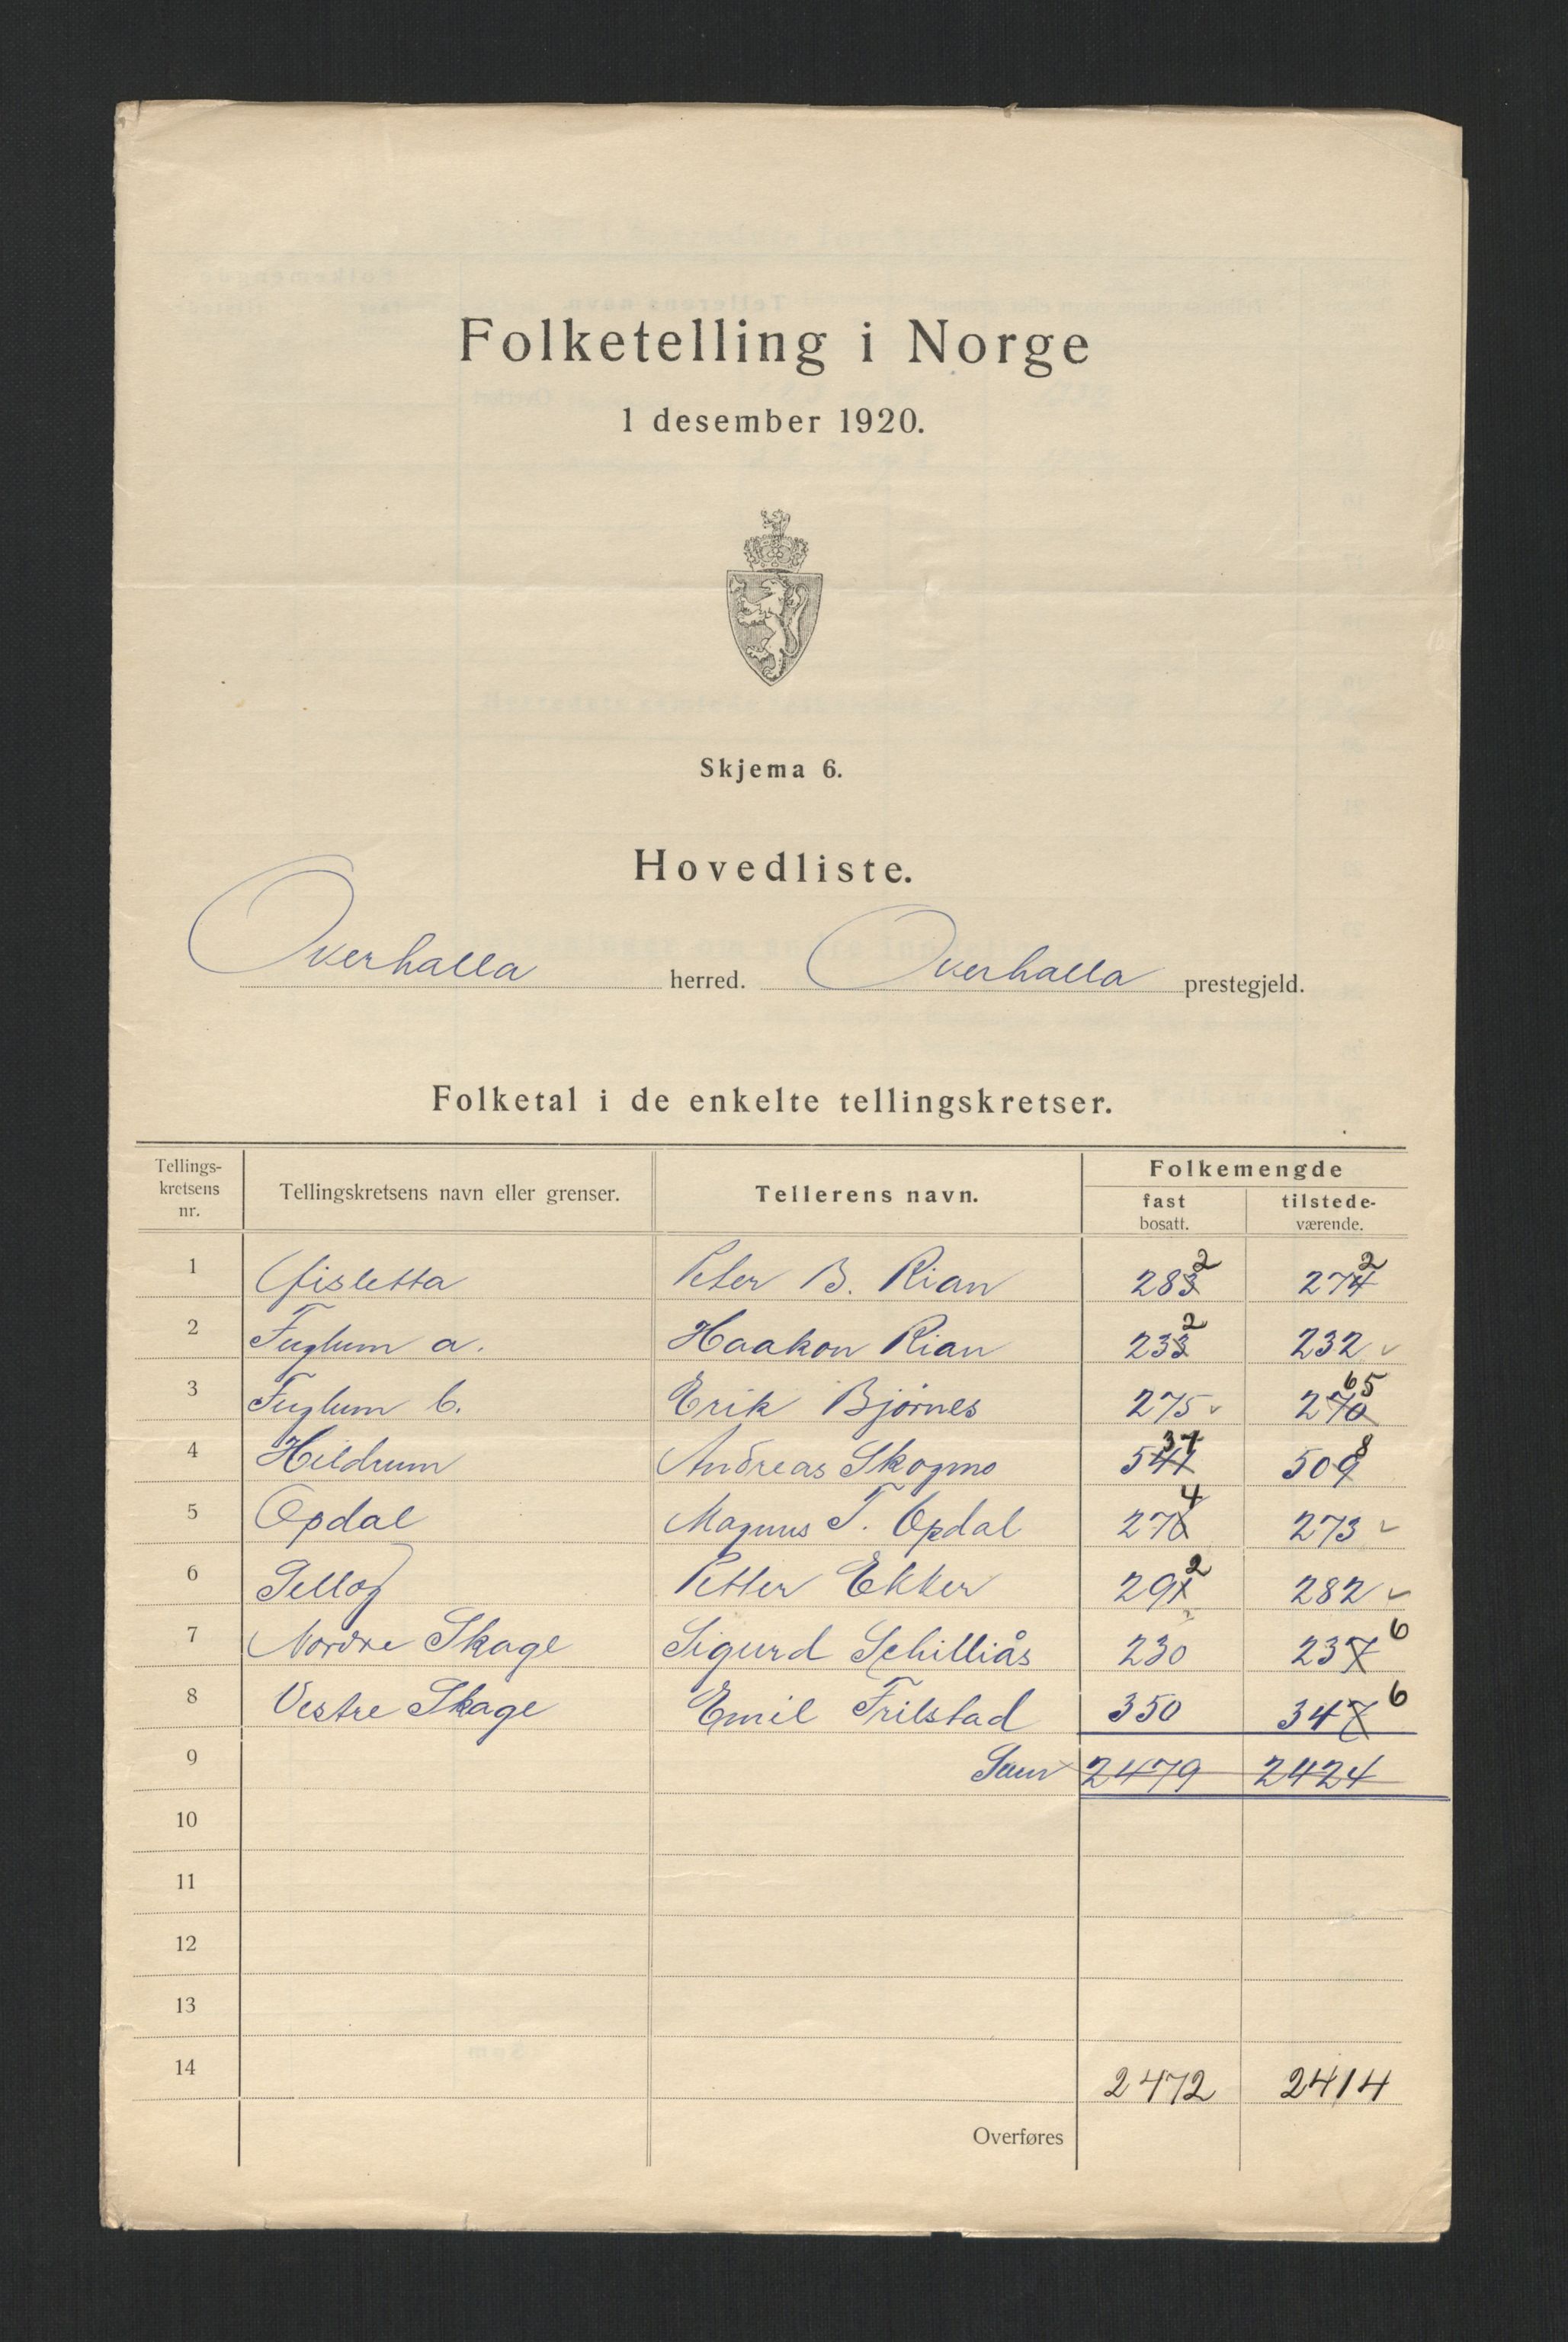 Folketelling i Norge
1 desember 1920.
Skjema 6.
Hovedliste.
Overhalla herred. Overhalla prestegjeld.
Folketal i de enkelte tellingskretser.
Tellings-kretsens nr. Tellingskretsens navn eller grenser. Tellerens navn. Folkemengde
fast bosatt. tilstede-værende.
1 Gisletta Peter B. Rian 283 2 274 2
2 Fuglum a. Haakon Rian 233 2 232
3 Fuglum b. Erik Bjørnes 275 270 65
4 Hildrum Andreas Skogmo 541 37 509 8
5 Opdal Magnus T. Opdal 276 4 273
6 Petter Ekker 291 2 282
7 Nordre Skage Sigurd Schilliås 230 237 6
8 Vestre Skage Emil Frilstad 350 347 6
9 Sum 2479 2424
10
11
12
13
14 2472 2414
Overføres